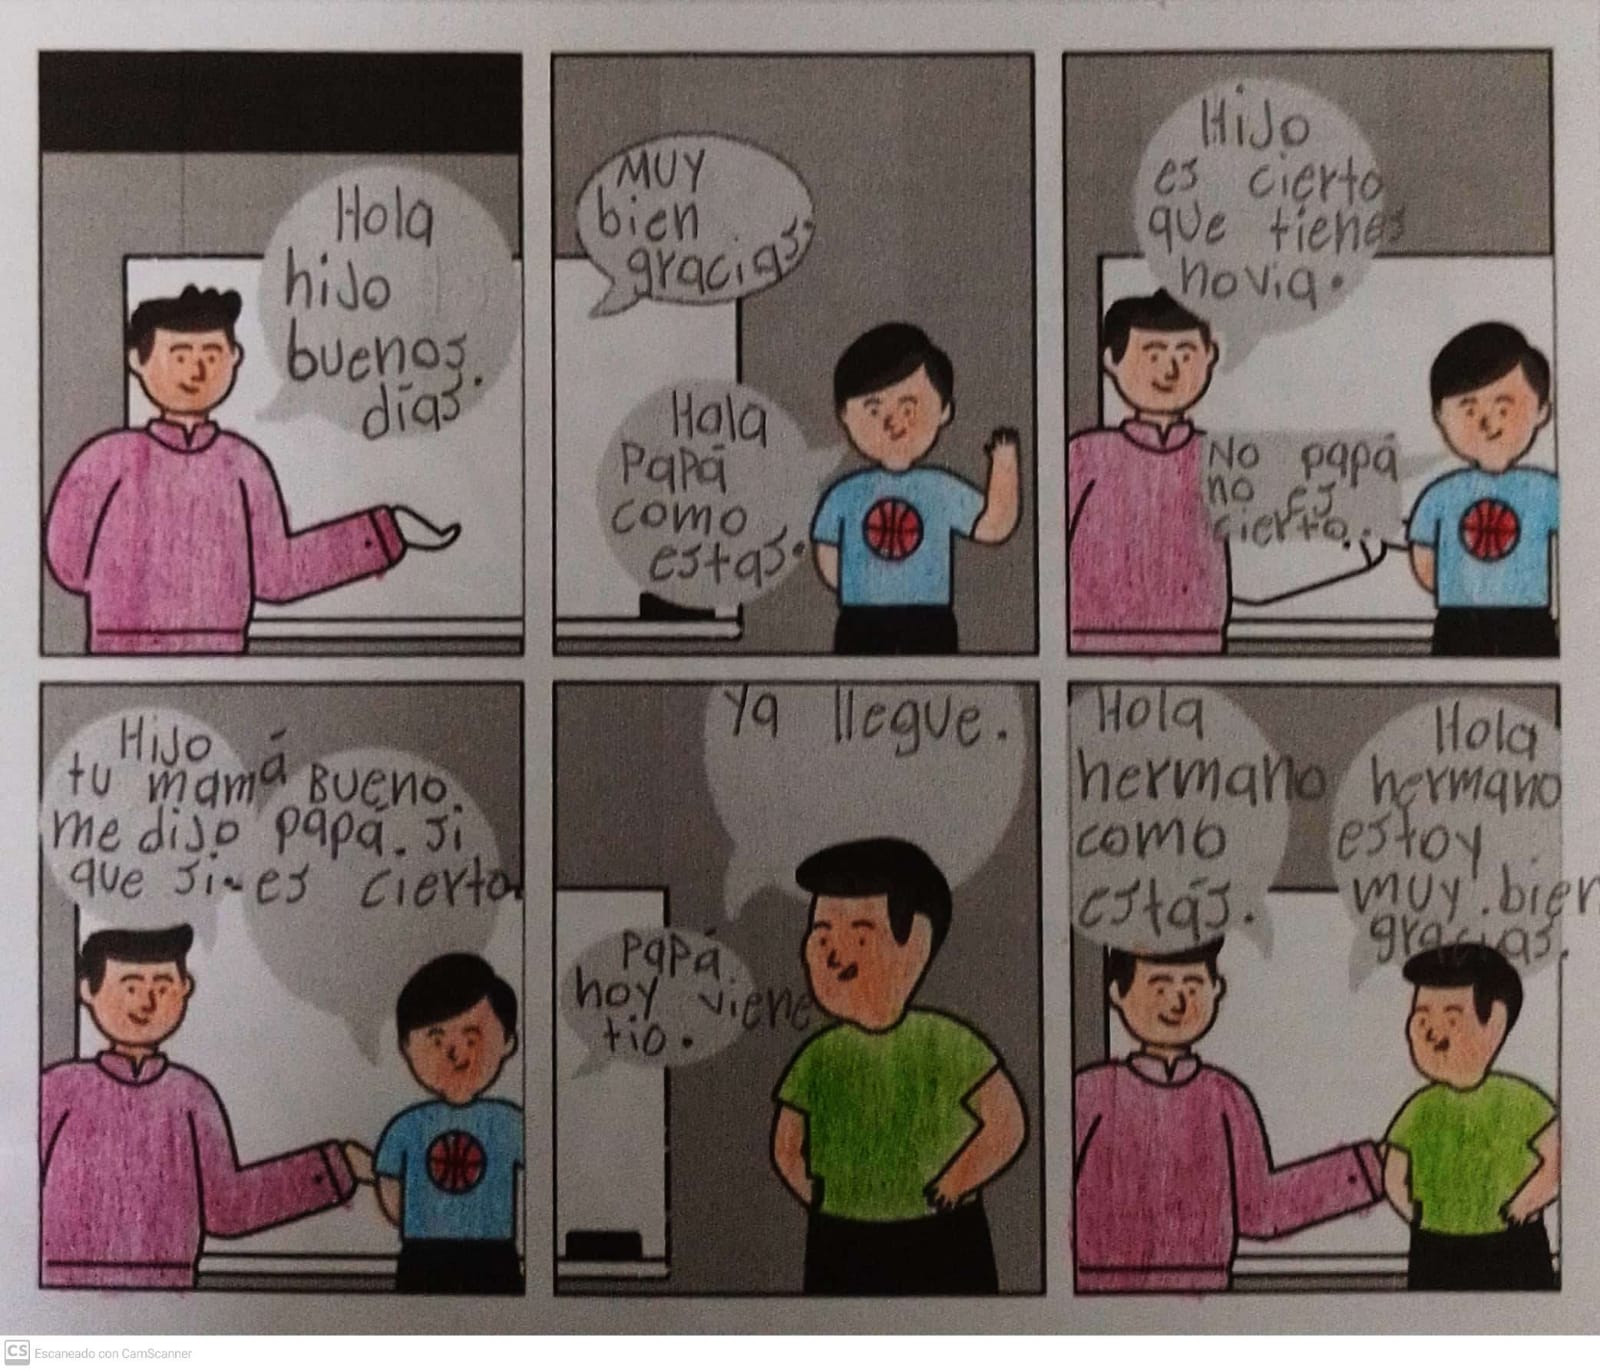 Hola
hijo
buenos
días.
MUY
bien
gracias.
Hola
Papá
como
estas.
Hijo
es cierto
que tienes
novia.
No papá
no es
cierto.
Hijo
tu mamá
me dijo
que si.
Bueno.
papá. si
es cierto.
Ya llegue.
Papá
hoy viene
tio.
Hola
hermano
como
estás.
Hola
hermano
estoy
muy bien
gracias.
CS Escaneado con CamScanner